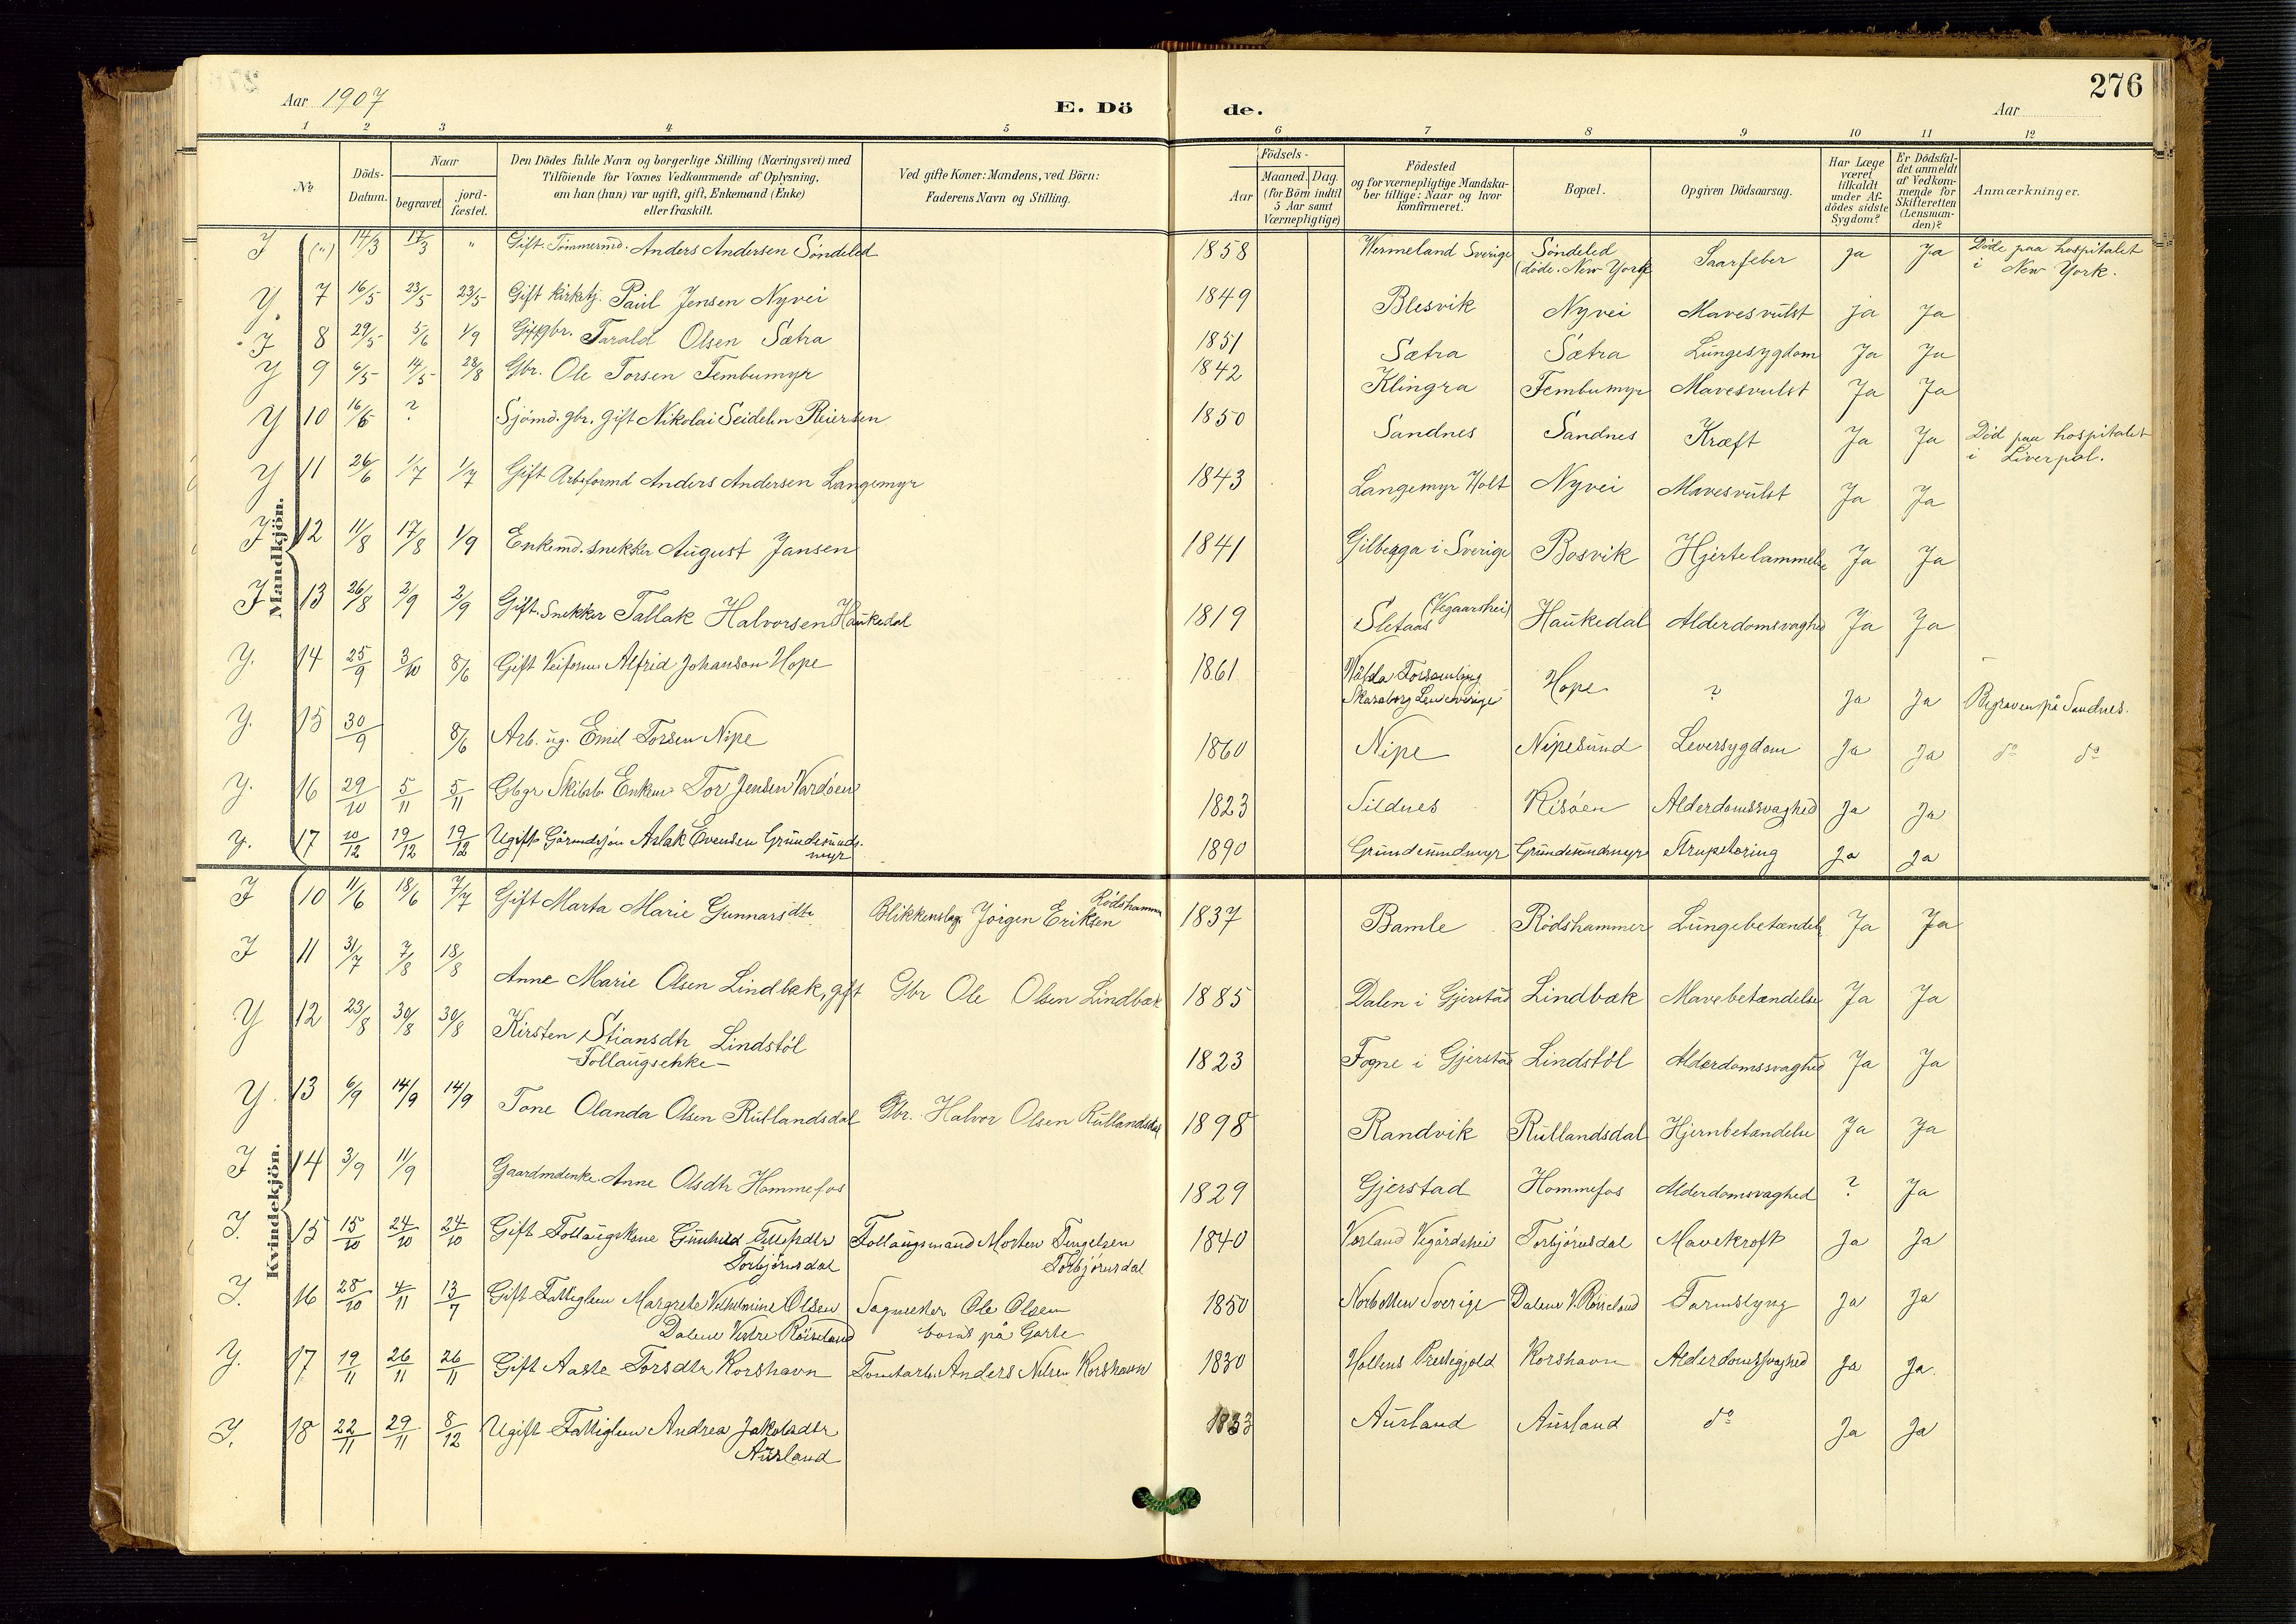 276
Aar 1907
E. Dö
de.
Aar
1 2 3 4 5 6 7 8 9 10 11 12
No
Döds-Datum.
Naar
begravet
jord-fæstet.
Den Dödes fulde Navn og borgerlige Stilling (Næringsvei) med
Tilföiende for Voxnes Vedkommende af Oplysning,
om han (hun) var ugift, gift, Enkemand (Enke)
eller fraskilt.
Ved gifte Koner: Mandens, ved Börn:
Faderens Navn og Stilling.
Födsels-
Aar
Maaned. Dag.
(for Börn indtil
5 Aar samt
Værnepligtige)
Födested
og for værnepligtige Mandska-
ber tillige: Naar og hvor
konfirmeret.
Bopæl.
Opgiven Dödsaarsag.
Har Læge
været
tilkaldt
under Af-
dödes sidste
Sygdom?
Er Dödsfal-
det anmeldt
af Vedkom-
mende for
Skifteretten
(Lensman-
den)?
Anmærkninger.
Mandkjön.
J (") 14/3 17/3 " Gift. Tømmermd. Anders Andersen Søndeled 1858 Wermeland Sverige Søndeled Saarfeber Ja Ja Døde paa hospitalet
(døde. New York) i New York.
Y 7 16/5 23/5 23/5 Gift kirketj. Paul Jensen Nyvei 1849 Blesvik Nyvei Mavesvulst ja Ja
J 8 29/5 5/6 1/9 Gift gbr. Tarald Olsen Sætra 1851 Sætra Sætra Lungesygdom Ja Ja
Y 9 6/5 14/5 28/8 Gbr. Ole Torsen Fembumyr 1842 Klingra Fembumyr Mavesvulst Ja Ja
Y 10 16/6 ? Sjömd. gbr. gift Nikolai Seidelin Reiersen 1850 Sandnes Sandnes Kræft Ja Ja Död paa hospitalet
i Liverpol.
Y 11 26/6 1/7 1/7 Gift Arbeformd Anders Andersen Langemyr 1843 Langemyr Holt Nyvei Mavesvulst Ja Ja
J 12 11/8 17/8 1/9 Enkemd. snekker August Jansen 1841 Gilberga i Sverige Bosvik Hjertelammelse Ja Ja
J 13 26/8 2/9 2/9 Gift. Snekker Tallak Halvorsen Haukedal 1819 Sletaas (Vegaarshei) Haukedal Alderdomsvaghed Ja Ja
Y. 14 25/9 3/10 8/6 Gift Veiform. Alfrid Johanson Hope 1861 Forsamling Hope ? Ja Ja Begraven på Sandnes.
Skaraborg Len Sverige
Y. 15 30/9 8/6 Arb. ug. Emil Torsen Nipe 1860 Nipe Nipesund Leversygdom Ja Ja do do
Y. 16 29/10 5/11 5/11 Gbgr Enkem Tor Jensen Vardøen 1823 Sildnes Risøen Alderdomssvaghed Ja Ja
Y. 17 10/12 19/12 19/12 Ugift Gårmdsjøn Aslak Evensen Grundesunds-
myr 1890 Grundesundmyr Grundesundmyr Strupetæring Ja Ja
Kvindekjön.
J 10 11/6 18/6 7/7 Gift Marta Marie Gunnarsdtr Blikkenslag. Jörgen Eriksen Rödshammer 1837 Bamle Rödshammer Lungebetændels Ja Ja
J 11 31/7 7/8 18/8 Anne Marie Olsen Lindbæk, gift Gbr Ole Olsen Lindbæk 1885 Dalen i Gjerstad Lindbæk Mavebetændelse Ja Ja
Y 12 23/8 30/8 30/8 Kirsten Stiansdtr Lindstöl
-Follaugsenke- 1823 Fogne i Gjerstad Lindstöl Alderdomssvaghed Ja Ja
Y. 13 6/9 14/9 14/9 Tone Olanda Olsen Rullandsdal Gbr. Halvor Olsen Rullandsdal 1898 Randvik Rullandsdal Hjernbetændelse Ja Ja
J 14 3/9 11/9 Gaardmdenke. Anne Olsdtr Hommefos 1829 Gjerstad Hommefos Alderdomsvaghed ? Ja
J. 15 15/10 24/10 24/10 Gift Follaugskone Gunhild Tellefsdtr Follaugsmand Morten Tengelsen 1840 Vigårdshei Torbjörnsdal Mavekræft Ja Ja
Torbjörnsdal Torbjörnsdal
J. 16 28/10 4/11 13/7 Gift Fattiglem Margrete Vilhelmine Olsen Sagmester Ole Olsen 1850 Norbotten Sverige Dalene V. Röiseland Tarmslyng Ja Ja
Dalene Vestre Röiseland på Garte
Y. 17 19/11 26/11 26/11 Gift Aaste Torsdtr Korshavn Tomtarb. Anders Nilsen Korshavn 1830 Holtens Prestegjeld Korshavn Alderdomssvaghed Ja Ja.
J. 18 22/11 29/11 8/12 Ugift Fattiglem Andrea Jakobsdtr
Ausland 1833 Ausland Ausland do Ja Ja